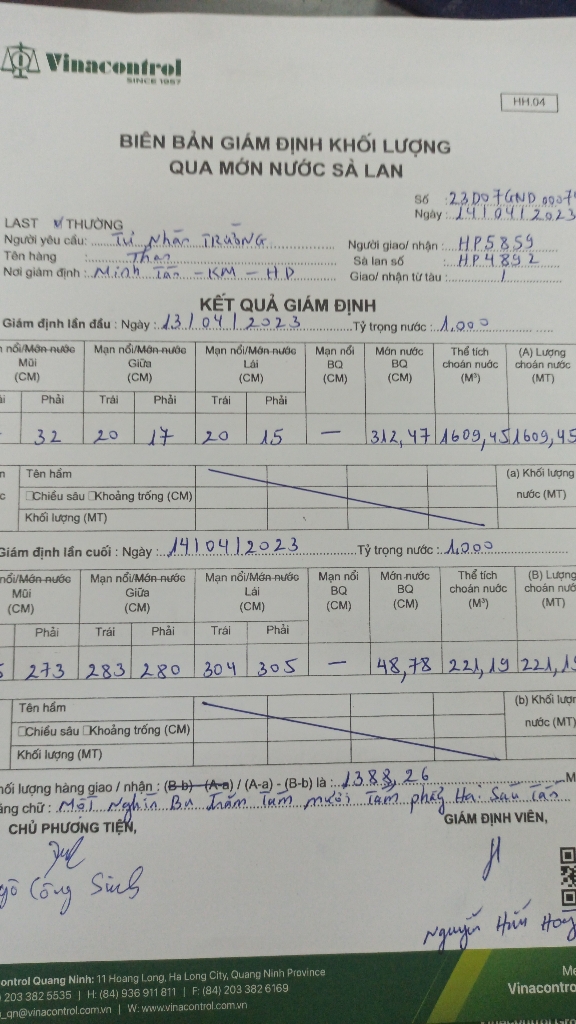 Vinacontrol
SINCE 1957
HH.04
BIÊN BẢN GIÁM ĐỊNH KHỐI LƯỢNG
QUA MỚN NƯỚC SÀ LAN
Số : 23D07GND 0007
Ngày : 14/04/2023
LAST THƯỜNG
Người yêu cầu: Tư Nhân TRƯỜNG
Người giao/ nhận : HP5859
Tên hàng : Than
Sà lan số : HP4892
Nơi giám định : Minh Tân - KM - HD
Giao/ nhận từ tàu : /
KẾT QUẢ GIÁM ĐỊNH
Giám định lần đầu : Ngày : 13/04/2023 Tỷ trọng nước : 1,000
nổi/Mớn nước Mũi (CM) Mạn nổi/Mớn nước Giữa (CM) Mạn nổi/Mớn nước Lái (CM) Mạn nổi BQ (CM) Mớn nước BQ (CM) Thể tích choán nước (M³) (A) Lượng choán nước (MT)
Phải Trái Phải Trái Phải
32 20 17 20 15 — 312,47 1609,45 1609,45
Tên hầm (a) Khối lượng
Chiều sâu Khoảng trống (CM) nước (MT)
Khối lượng (MT)
Giám định lần cuối : Ngày : 14/04/2023 Tỷ trọng nước : 1,000
nổi/Mớn nước Mũi (CM) Mạn nổi/Mớn nước Giữa (CM) Mạn nổi/Mớn nước Lái (CM) Mạn nổi BQ (CM) Mớn nước BQ (CM) Thể tích choán nước (M³) (B) Lượng choán nước (MT)
Phải Trái Phải Trái Phải
273 283 280 304 305 — 48,78 221,19 221,19
Tên hầm (b) Khối lượng
Chiều sâu Khoảng trống (CM) nước (MT)
Khối lượng (MT)
hối lượng hàng giao / nhận : (B-b) - (A-a) / (A-a) - (B-b) là : 1388,26 M
ằng chữ : Một Nghìn Ba Trăm Tám mươi Tám phẩy Hai Sáu Tấn
CHỦ PHƯƠNG TIỆN,
GIÁM ĐỊNH VIÊN,
gô Công Sinh
Nguyễn Hữu
control Quang Ninh: 11 Hoang Long, Ha Long City, Quang Ninh Province
203 382 5535 | H: (84) 936 911 811 | F: (84) 203 382 6169
_qn@vinacontrol.com.vn | W: www.vinacontrol.com.vn
Me
Vinacontro